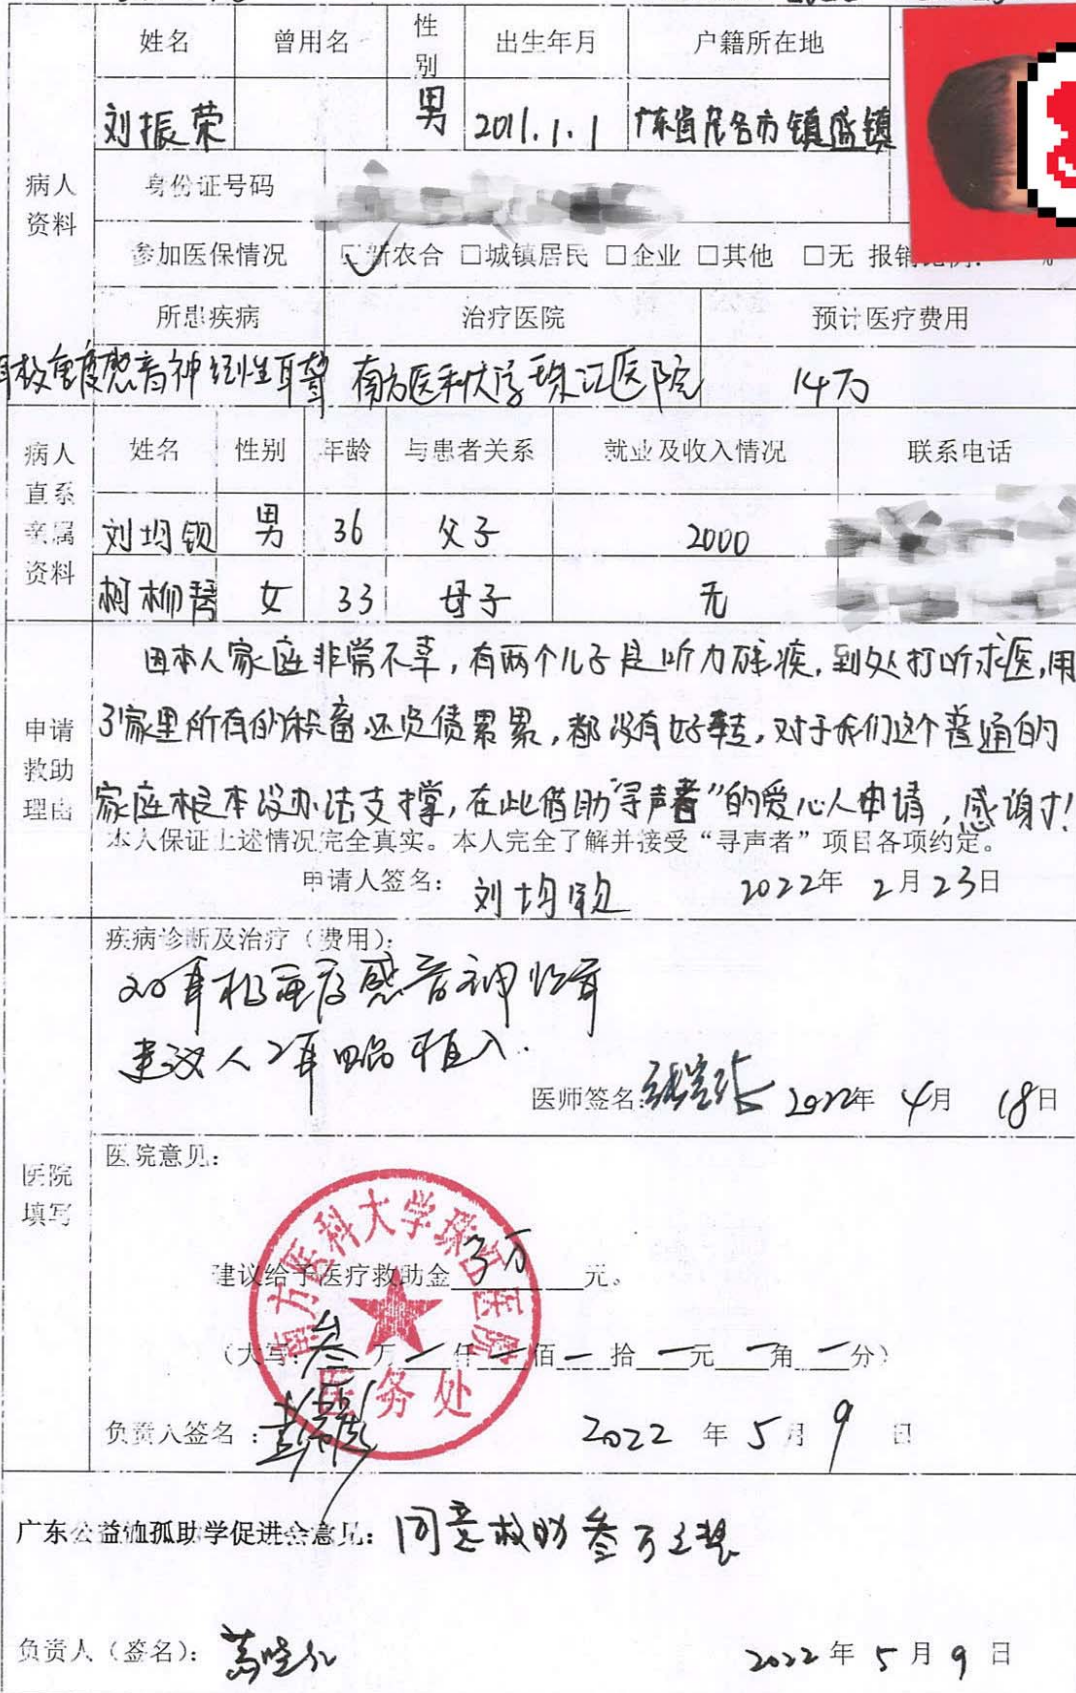 姓名 曾用名 性别 出生年月 户籍所在地
刘振荣 男 2011.1.1 广东省茂名市镇盛镇
病人资料
身份证号码
参加医保情况 ☑新农合 □城镇居民 □企业 □其他 □无 报销比例: %
所患疾病 治疗医院 预计医疗费用
耳极重度感音神经性耳聋 南方医科大学珠江医院 14万
病人直系亲属资料
姓名 性别 年龄 与患者关系 就业及收入情况 联系电话
刘均钡 男 36 父子 2000
柯柳琴 女 33 母子 无
申请救助理由
因本人家庭非常不幸,有两个儿子是听力残疾,到处打听求医,用
了家里所有的积畜还负债累累,都没有好转,对于我们这个普通的
家庭根本没办法支撑,在此借助“寻声者”的爱心人申请,感谢!
本人保证上述情况完全真实。本人完全了解并接受“寻声者”项目各项约定。
申请人签名: 刘均钡 2022年 2月23日
医院填写
疾病诊断及治疗(费用):
双耳极重度感音神经聋
建议人工耳蜗植入.
医师签名: 2022年 4月 18日
医院意见:
南方医科大学珠江医院
医务处
建议给予医疗救助金 3万 元。
(大写: 叁 万 一 仟 一 佰 一 拾 一 元 一 角 一 分)
负责人签名: 2022 年 5月 9 日
广东公益恤孤助学促进会意见: 同意救助叁万元整
负责人(签名): 2022年 5月 9日